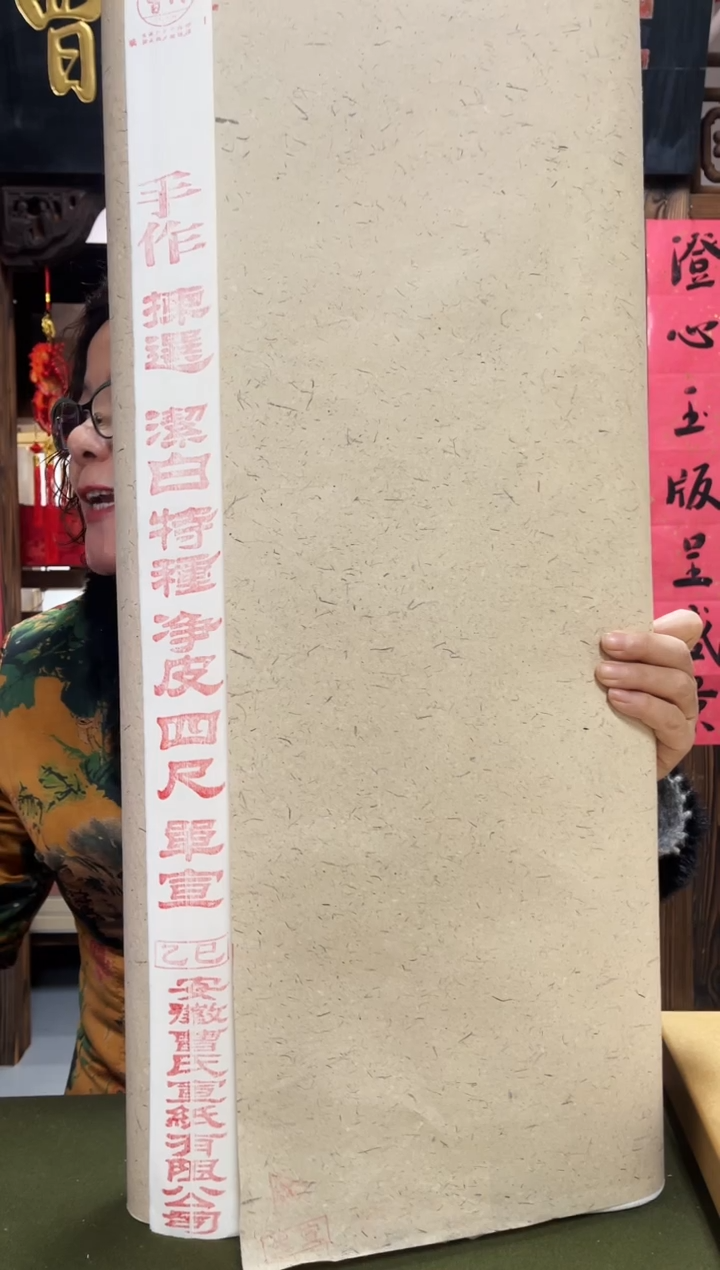 手作 揀選 潔白 特種 净皮 四尺 單宣
乙巳
安徽曹氏宣紙有限公司
澄心玉版呈